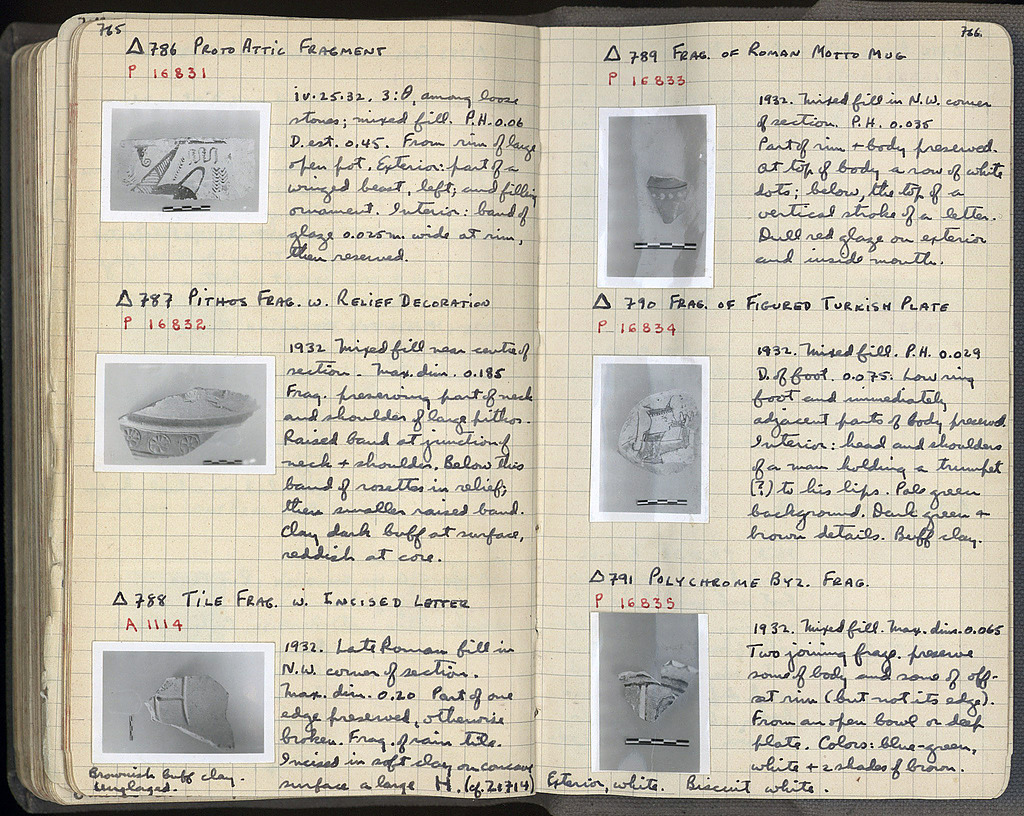 765
Δ 786 PROTO ATTIC FRAGMENT
P 16831
iv.25.32. 3:Θ, among loose
stones; mixed fill. P.H. 0.06
D. est. 0.45. From rim of large
open pot. Exterior: part of a
winged beast, left; and filling
ornament. Interior: band of
glaze 0.025m. wide at rim,
then reserved.
Δ 787 PITHOS FRAG. W. RELIEF DECORATION
P 16832
1932 Mixed fill near centre of
section. Max. dim. 0.185
Frag. preserving part of neck
and shoulder of large pithos.
Raised band at junction of
neck + shoulder. Below this
band of rosettes in relief;
then smaller raised band.
Clay dark buff at surface,
reddish at core.
Δ 788 TILE FRAG. W. INCISED LETTER
A 1114
1932. Late Roman fill in
N.W. corner of section.
Max. dim. 0.20 Part of one
edge preserved, otherwise
broken. Frag. of rain tile.
Incised in soft clay on concave
surface a large H. (cf.
Brownish buff clay.
Unglazed.
766.
Δ 789 FRAG. OF ROMAN MOTTO MUG
P 16833
1932. Mixed fill in N.W. corner
of section. P.H. 0.035
Part of rim + body preserved.
At top of body a row of white
dots; below, the top of a
vertical stroke of a letter.
Dull red glaze on exterior
and inside mouth.
Δ 790 FRAG. OF FIGURED TURKISH PLATE
P 16834
1932. Mixed fill. P.H. 0.029
D. of foot. 0.075. Low ring
foot and immediately
adjacent parts of body preserved.
Interior: head and shoulders
of a man holding a trumpet
(?) to his lips. Pale green
background. Dark green +
brown details. Buff clay.
Δ 791 POLYCHROME BYZ. FRAG.
P 16835
1932. Mixed fill. Max. dim. 0.065
Two joining frags. preserve
some of body and some of off-
set rim (but not its edge).
From an open bowl or deep
plate. Colors: blue-green,
white + 2 shades of brown.
Exterior, white. Biscuit white.